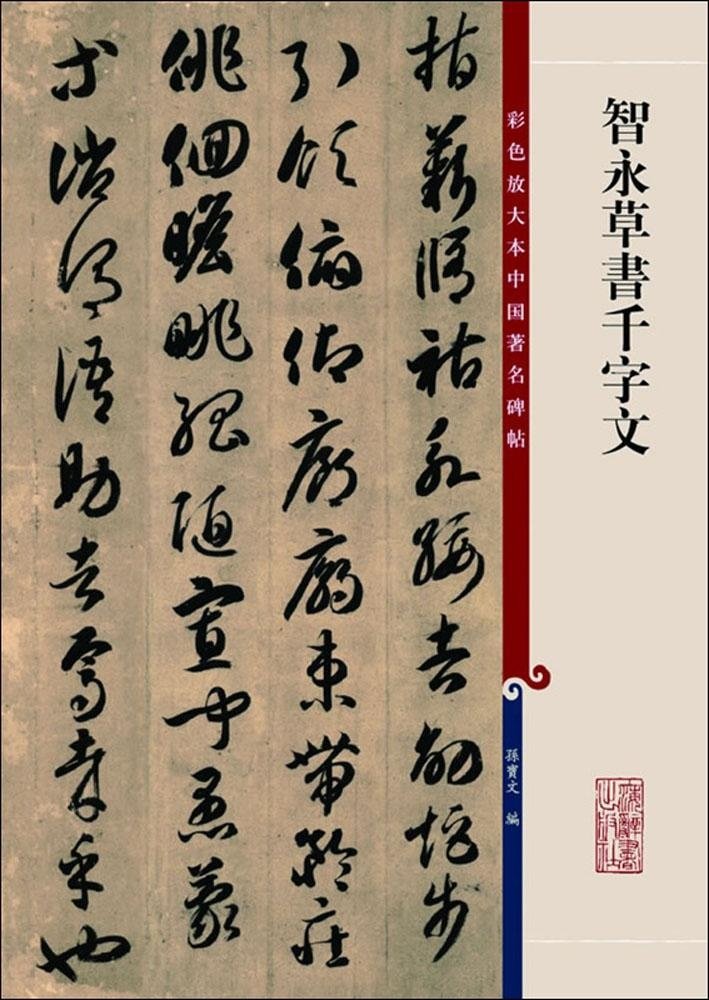 智永草書千字文
彩色放大本中国著名碑帖
孫寶文 編
指薪脩祜永綏吉劭矩步
引領俯仰廊廟束帶矜莊
俳佪瞻眺孤陋寡聞愚蒙
等誚謂語助者焉哉乎也